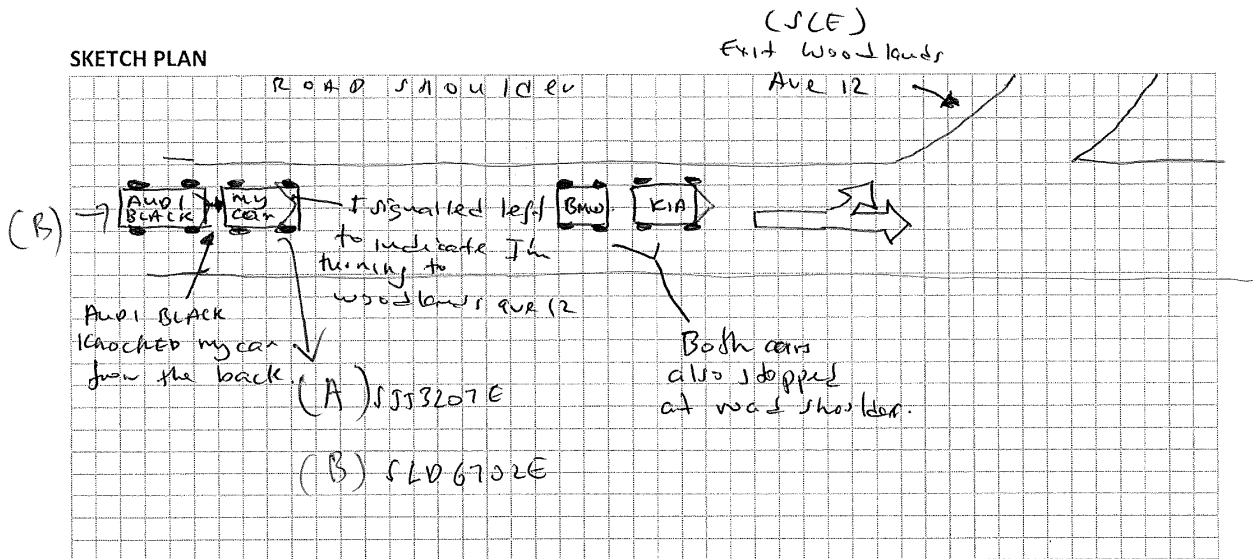 (SLE)
Exit Woodlands
Ave 12
SKETCH PLAN
ROAD Shoulder
(B)
AUDI
BLACK
my
car
I signalled left
to indicate I'm
turning to
woodlands ave 12
BMW
KIA
AUDI BLACK
KNOCKED my car
from the back.
Both cars
also stopped
at road shoulder.
(A) SJJ3207E
(B) SLD6702E